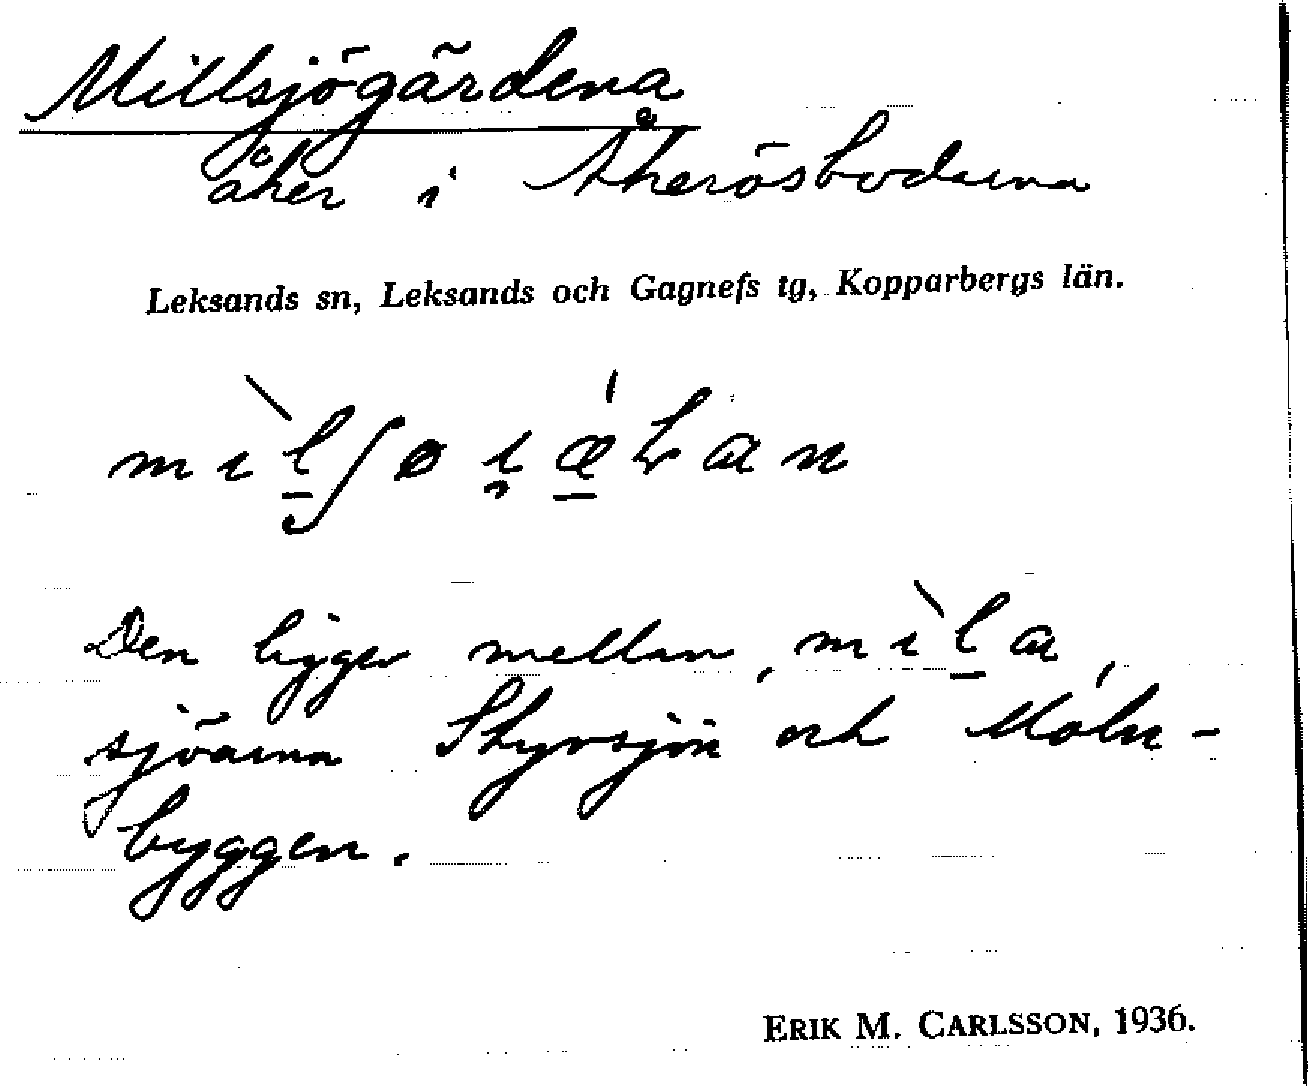 Millsjögärdena
åker i Åkerösbodarna
Leksands sn, Leksands och Gagnefs tg, Kopparbergs län.
Den ligger mellan, mɩ̀l̲a,
sjöarna Styrsjön och Moln-
byggen.
ERIK M. CARLSSON, 1936.